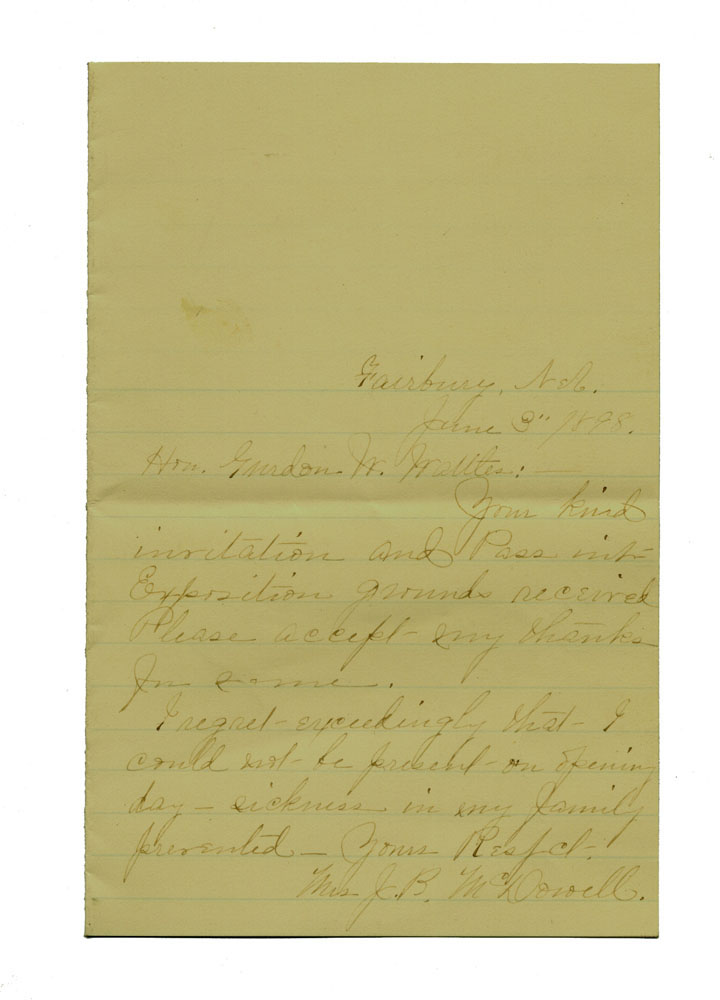 Fairbury, Neb.
June 3" 1898.
Hon. Gurdon W. Wattles: —
Your kind
invitation and Pass into
Exposition grounds received
Please accept my thanks
for same.
I regret exceedingly that I
could not be present on opening
day — sickness in my family
prevented — Yours Respct.
Mrs J. B. McDowell.